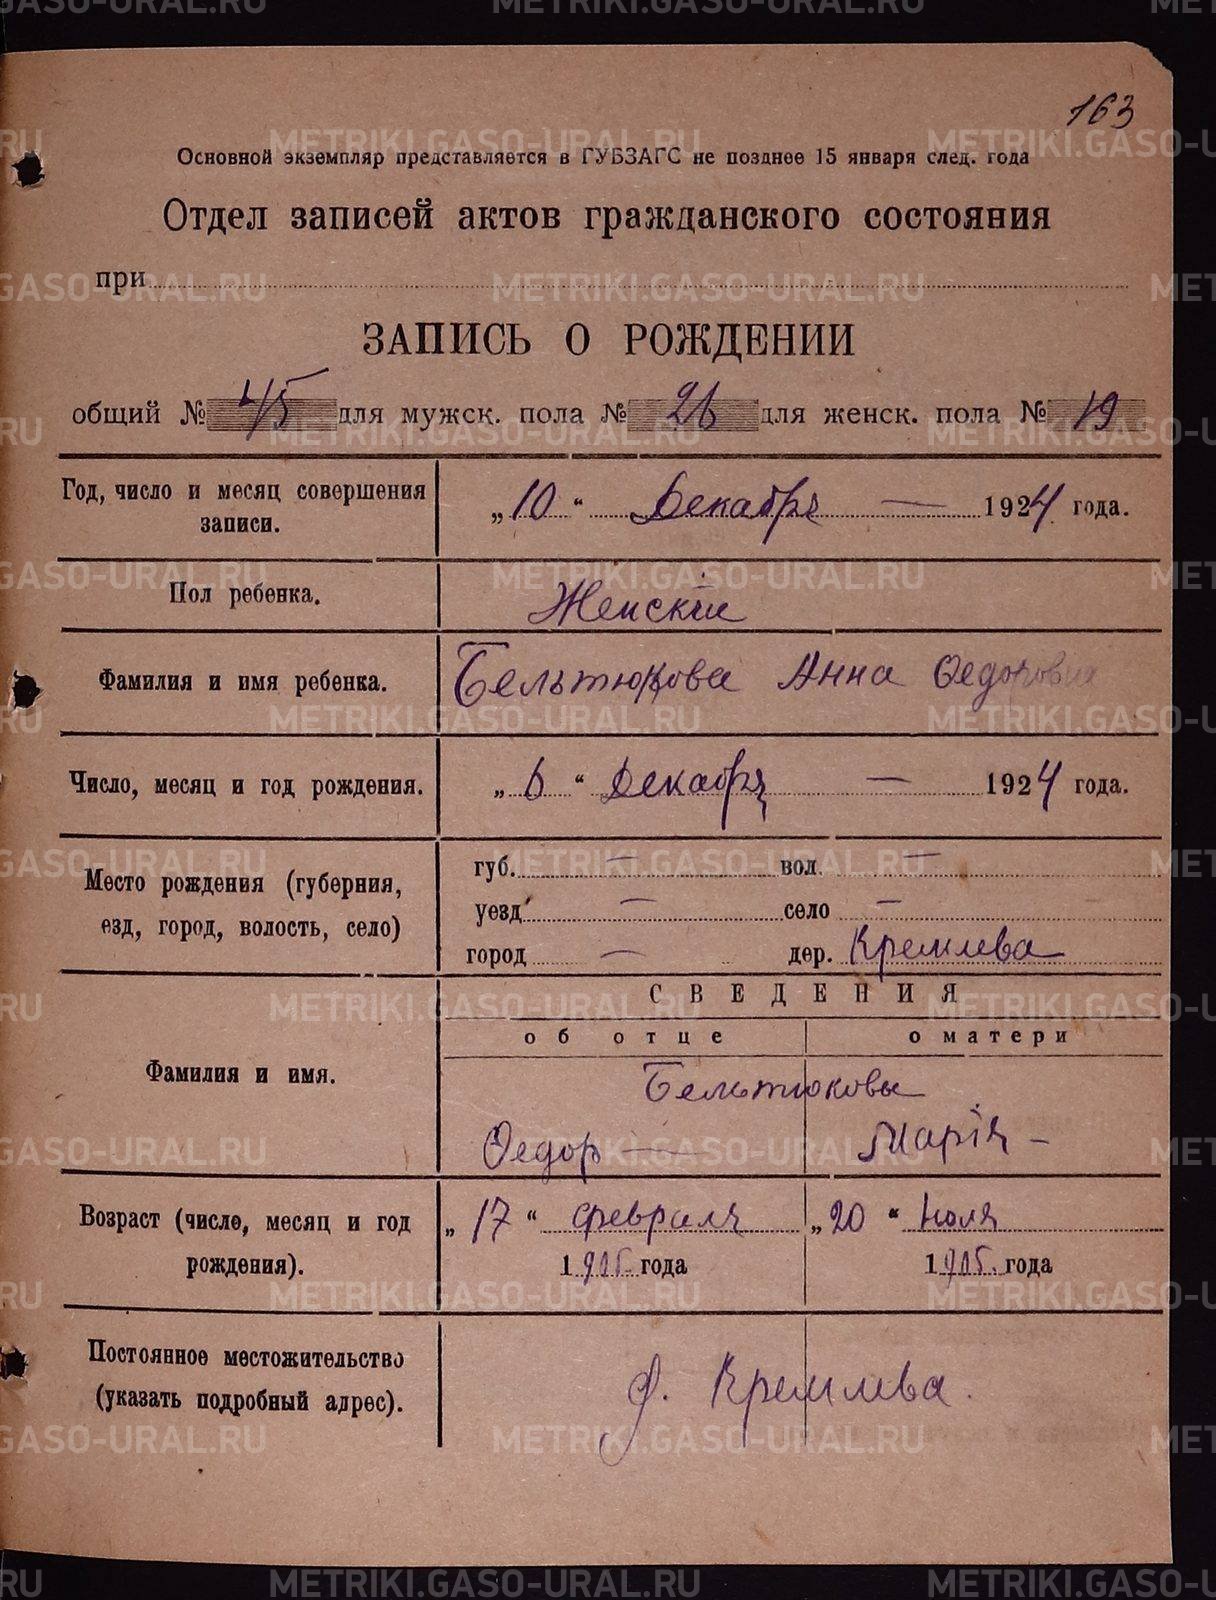 163
Основной экземпляр представляется в ГУБЗАГС не позднее 15 января след. года
Отдел записей актов гражданского состояния
при
ЗАПИСЬ О РОЖДЕНИИ
общий № 45 для мужск. пола № 26 для женск. пола № 19
Год, число и месяц совершения записи. „10“ Декабря — 1924 года.
Пол ребенка. Женскій
Фамилия и имя ребенка. Бельтюкова Анна Ѳедоровна
Число, месяц и год рождения. „6“ Декабря — 1924 года.
Место рождения (губерния, езд, город, волость, село)
губ. — вол. —
уезд — село —
город — дер. Кремлева
СВЕДЕНИЯ
об отце о матери
Фамилия и имя. Бельтюковы
Ѳедор — Марія —
Возраст (число, месяц и год рождения). „17“ февраля „20“ Июля
1905 года 1905. года
Постоянное местожительство (указать подробный адрес). д. Кремлева.
METRIKI.GASO-URAL.RU